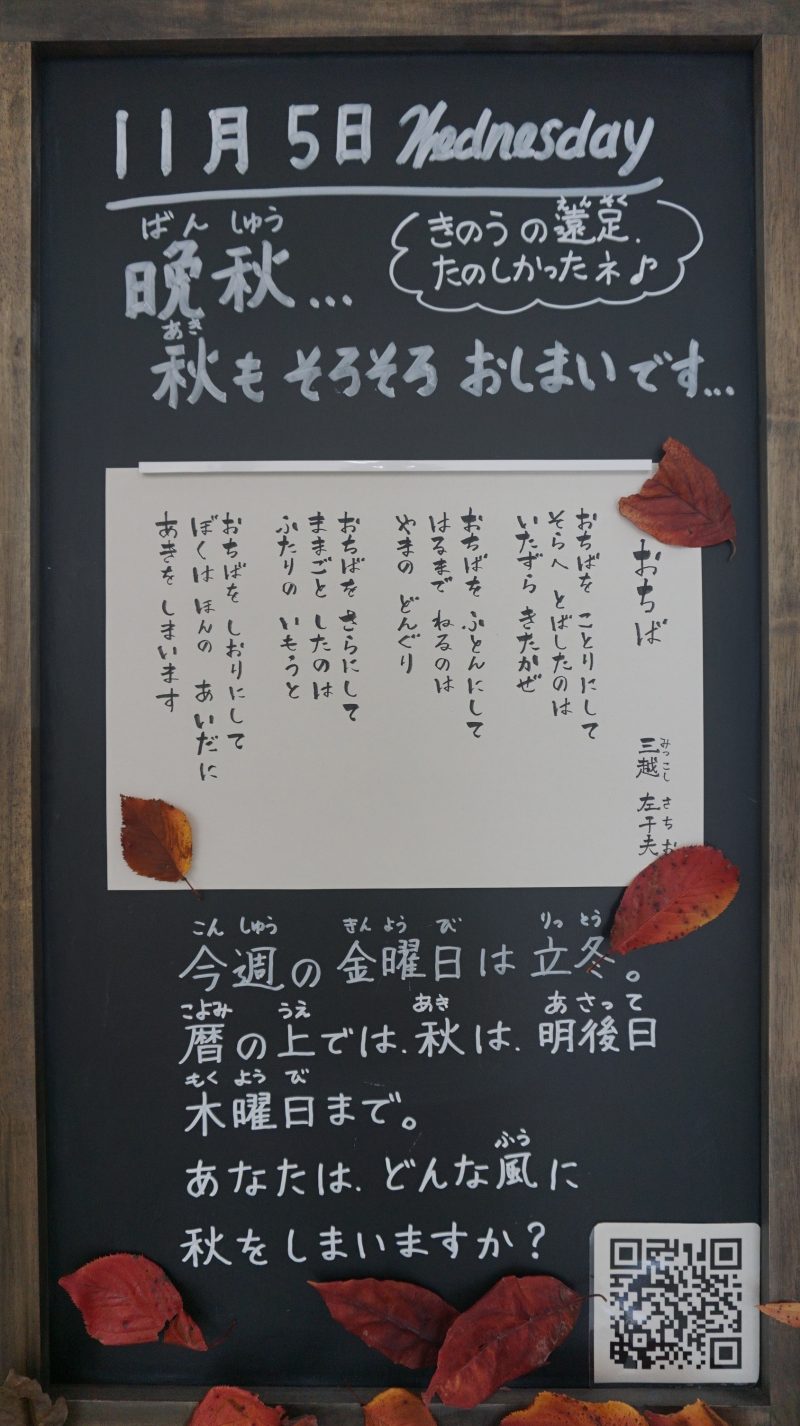 11月5日 Wednesday
ばんしゅう
晩秋...
えんそく
きのうの遠足、
たのしかったネ♪
あき
秋もそろそろおしまいです...
おちば
みつこし さちお
三越 左千夫
おちばを ことりにして
そらへ とばしたのは
いたずら きたかぜ
おちばを ふとんにして
はるまで ねるのは
やまの どんぐり
おちばを さらにして
ままごと したのは
ふたりの いもうと
おちばを しおりにして
ぼくは ほんの あいだに
あきを しまいます
こんしゅう きんようび りっとう
今週の金曜日は立冬。
こよみ うえ あき あさって
暦の上では、秋は、明後日
もくようび
木曜日まで。
ふう
あなたは、どんな風に
秋をしまいますか?